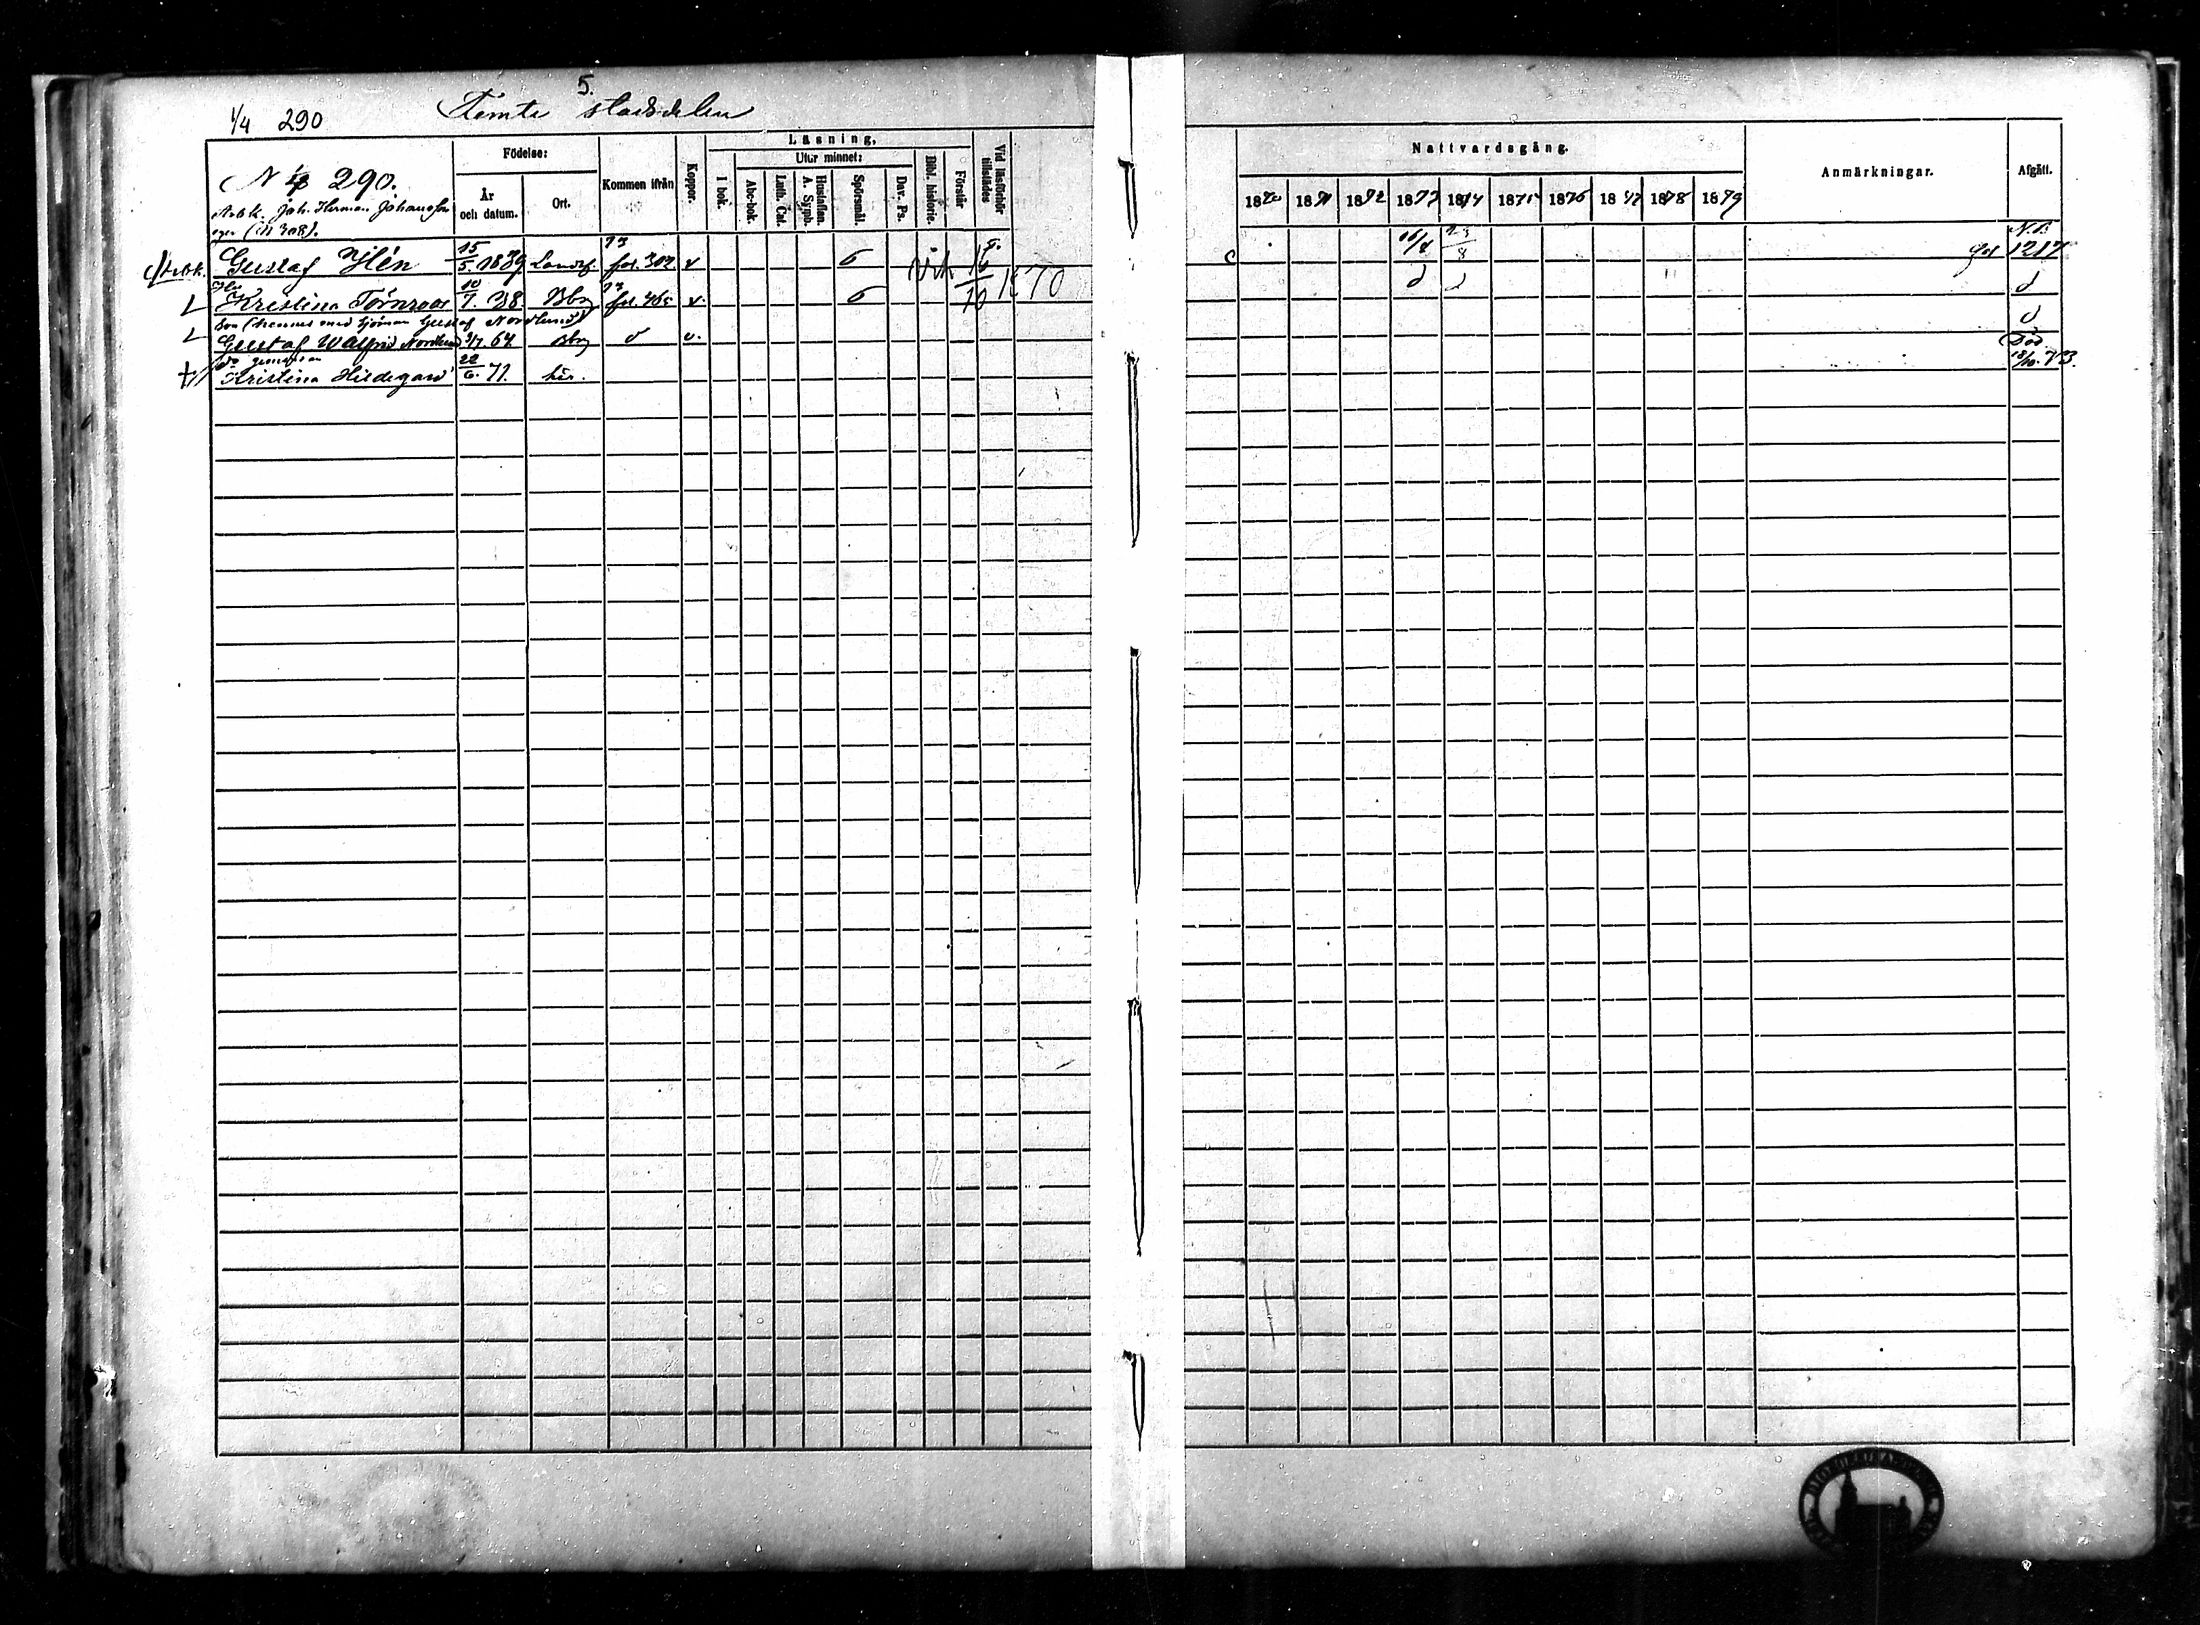 5.
1/4 290 Femte stadsdelen
Födelse: Kommen ifrån Koppor. Läsning. Vid läsförhör tillstädes Nattvardsgång. Anmärkningar. Afgått.
År och datum. Ort. I bok. Utur minnet: Bibl. historie. Förstår
Abc-bok. Luth. Cat. Hustaflan. A. Symb. Spörsmål: Dav. Ps.
1870 1871 1872 1873 1874 1875 1876 1877 1878 1879
N 290.
Arbk. Joh. Herman Johansson
eger (N 308).
Arbk. Gustaf Ylén 15/5. 1839 Landsf. 73 fol. 302 v 6 16/10 1870 16/8 23/8 N.B. 1217
Hu Kristina Törnroos 10/7. 38 Bbg 73 fol. 465 v. 6 d d d
Son (hennes med sjöman Gustaf Nordlund)
Gustaf Walfrid Nordlund 3/7 64 Bbg d v. d
Kristina Hildegard 22/6. 71. här. Död 18/10. 73.